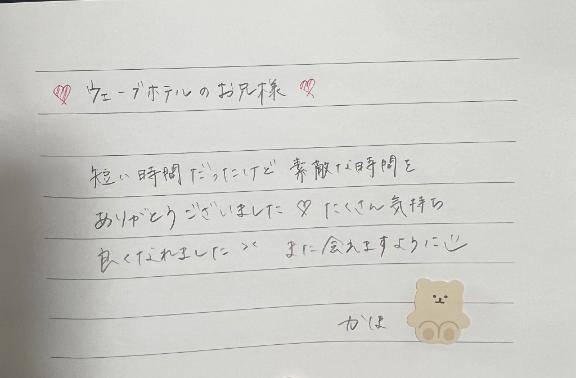 ♡ ウェーブホテルのお兄様 ♡
短い時間だったけど 素敵な時間を
ありがとうございました♡ たくさん気持ち
良くなれました›‹ また会えますように
かほ